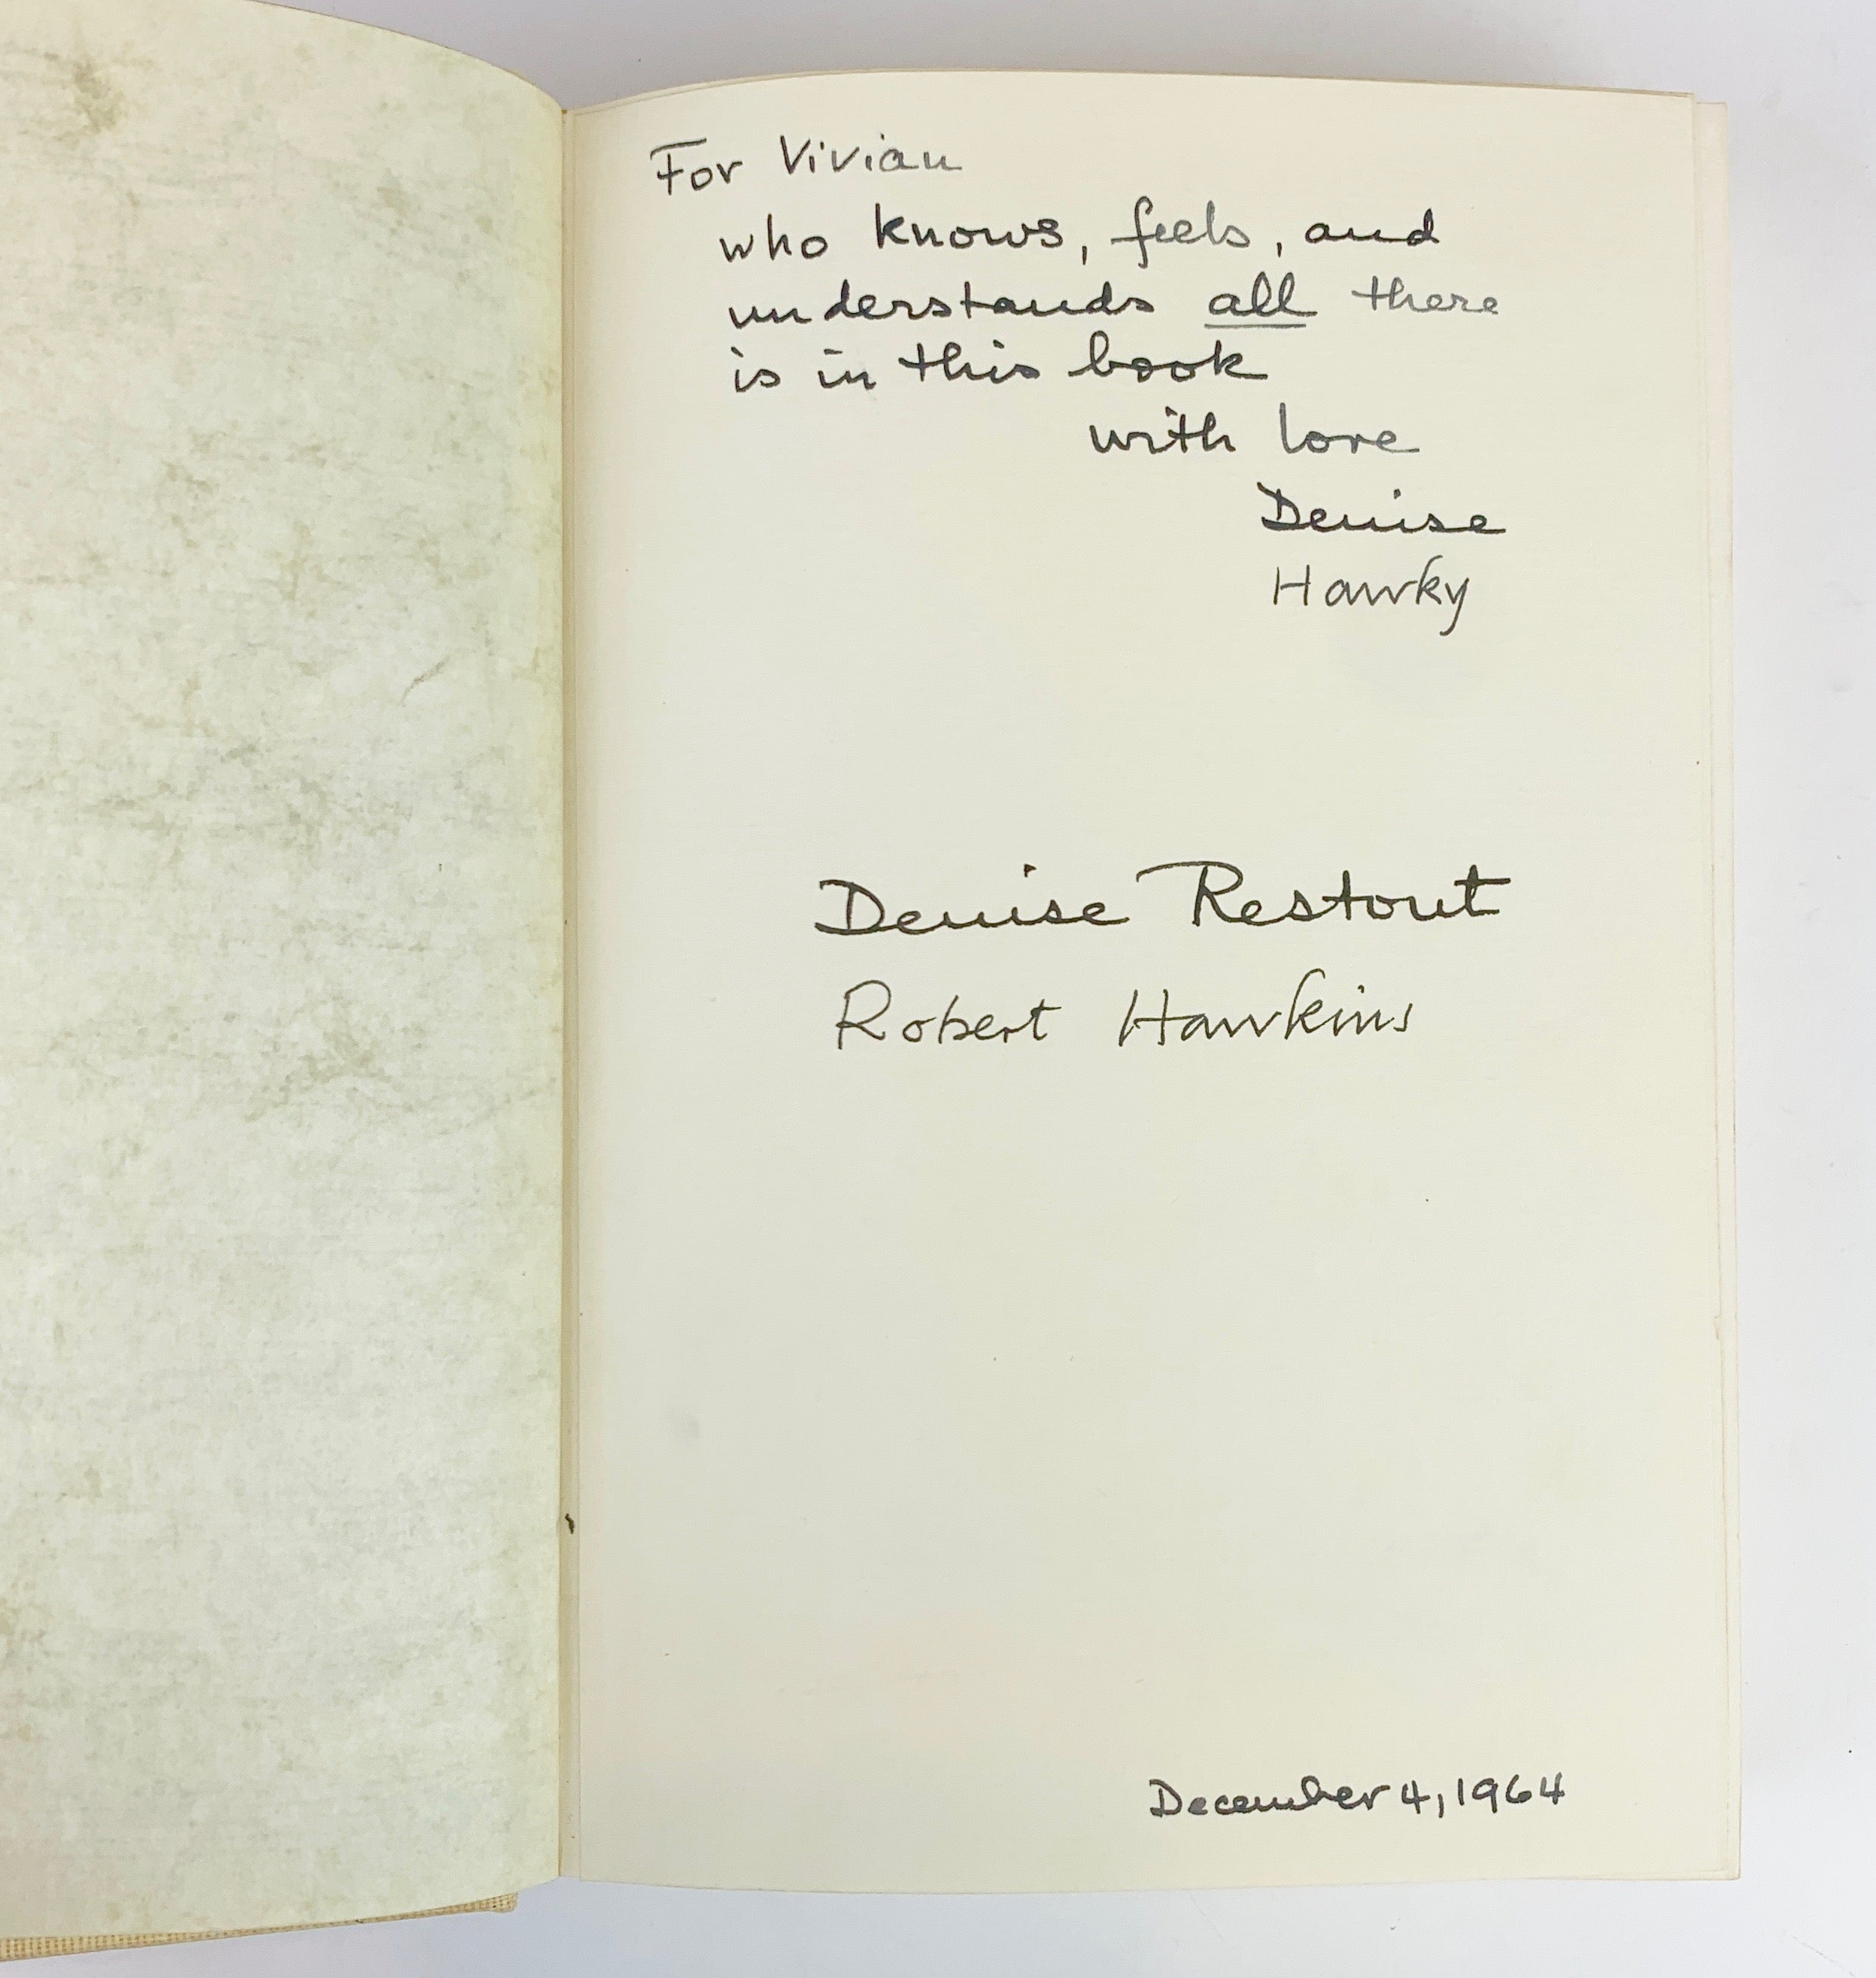 For Vivian
who knows, feels, and
understands all there
is in this book
with love
Denise
Hawky
Denise Restout
Robert Hawkins
December 4, 1964